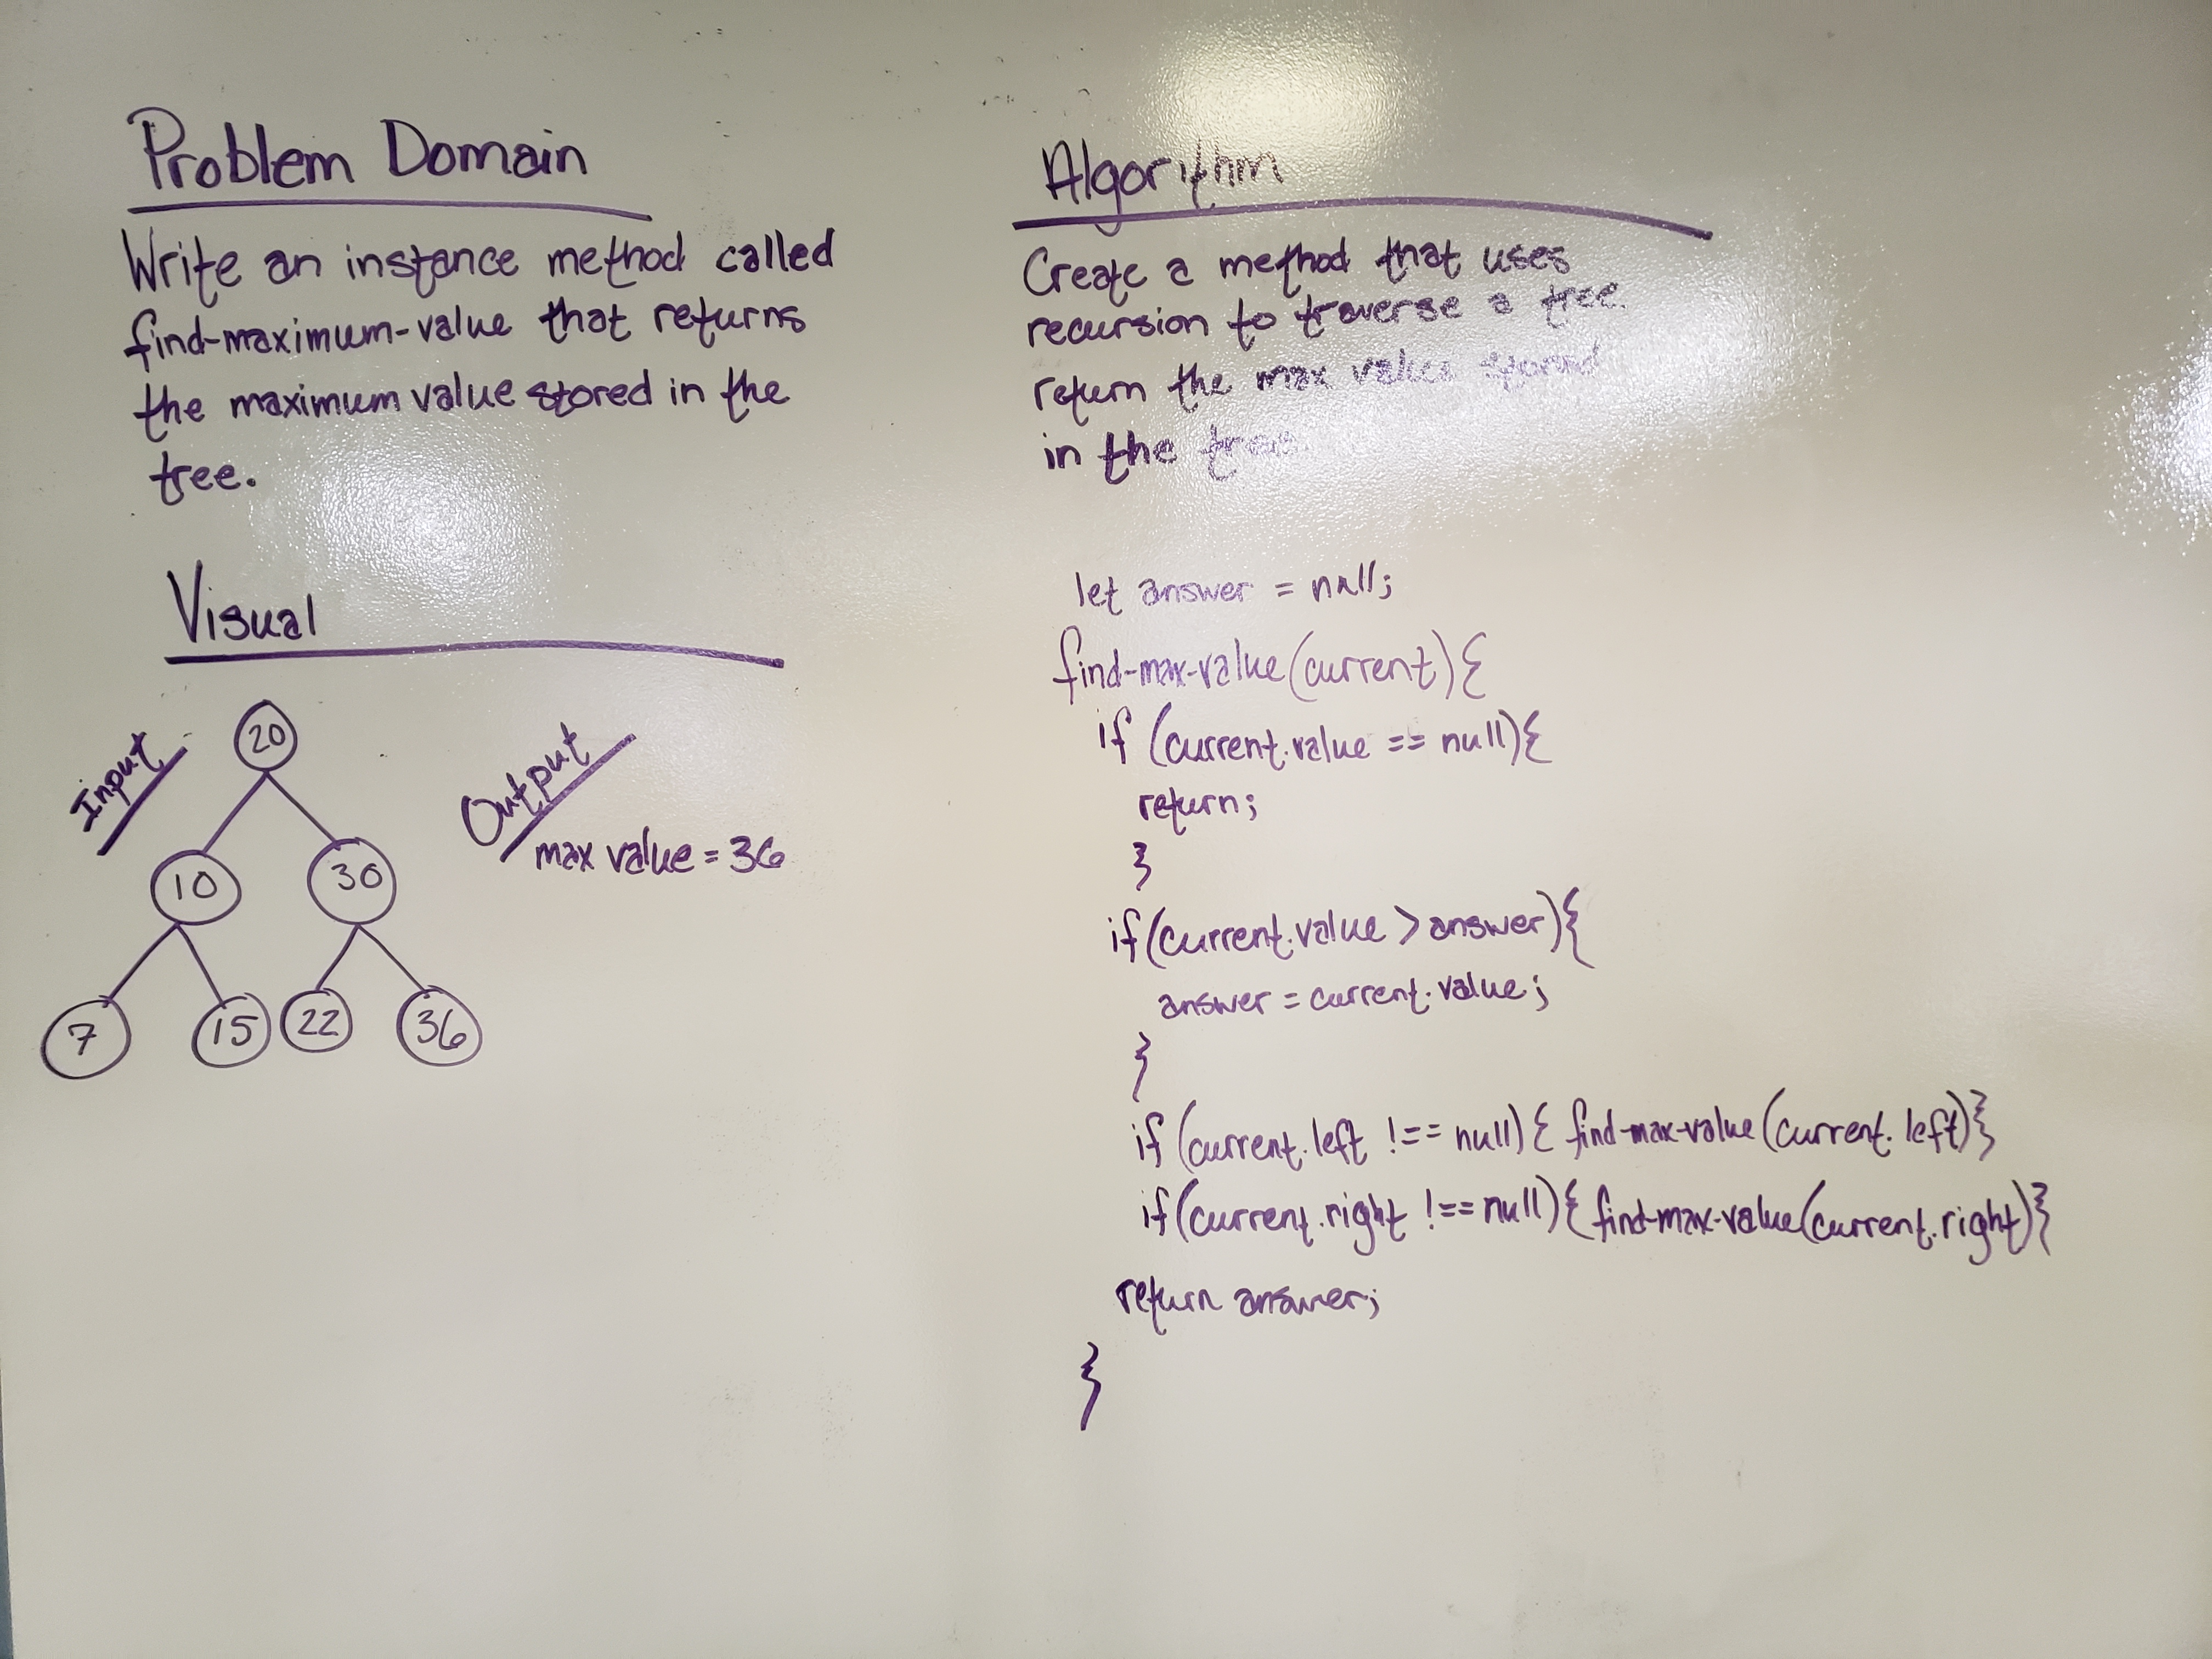 Problem Domain
Write an instance method called
find-maximum-value that returns
the maximum value stored in the
tree.
Visual
Input
20
10 30
7 15 22 36
Output
max value = 36
Algorithm
Create a method that uses
recursion to traverse a tree.
return the max value stored
in the tree.
let answer = null;
find-max-value(current){
if (current.value == null){
return;
}
if(current.value > answer){
answer = current.value;
}
if (current.left !== null){ find-max-value(current.left)}
if(current.right !== null){ find-max-value(current.right)}
return answer;
}